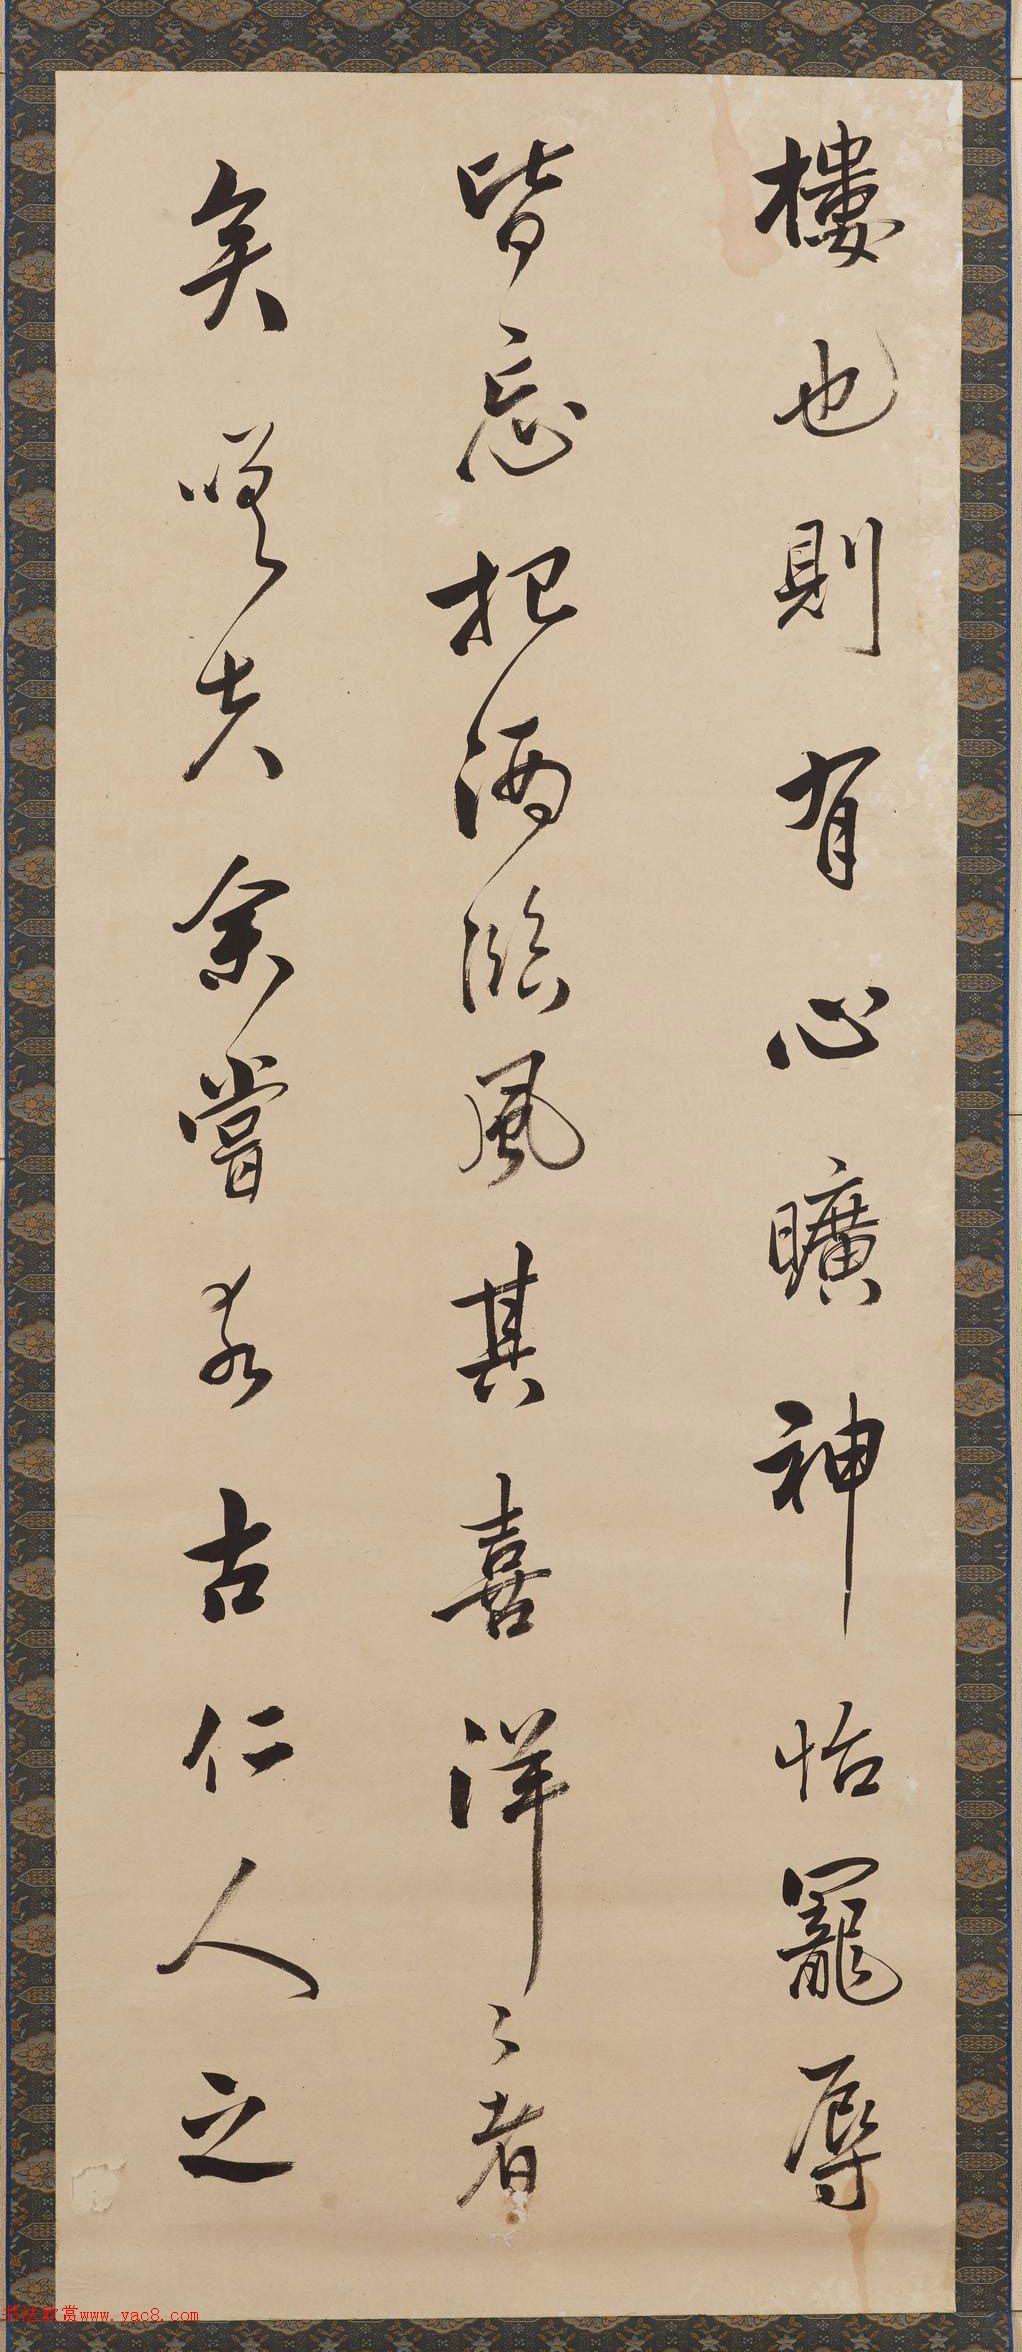 樓也則有心曠神怡寵辱
皆忘把酒臨風其喜洋々者
矣嗟夫余嘗求古仁人之
书法欣赏www.yac8.com